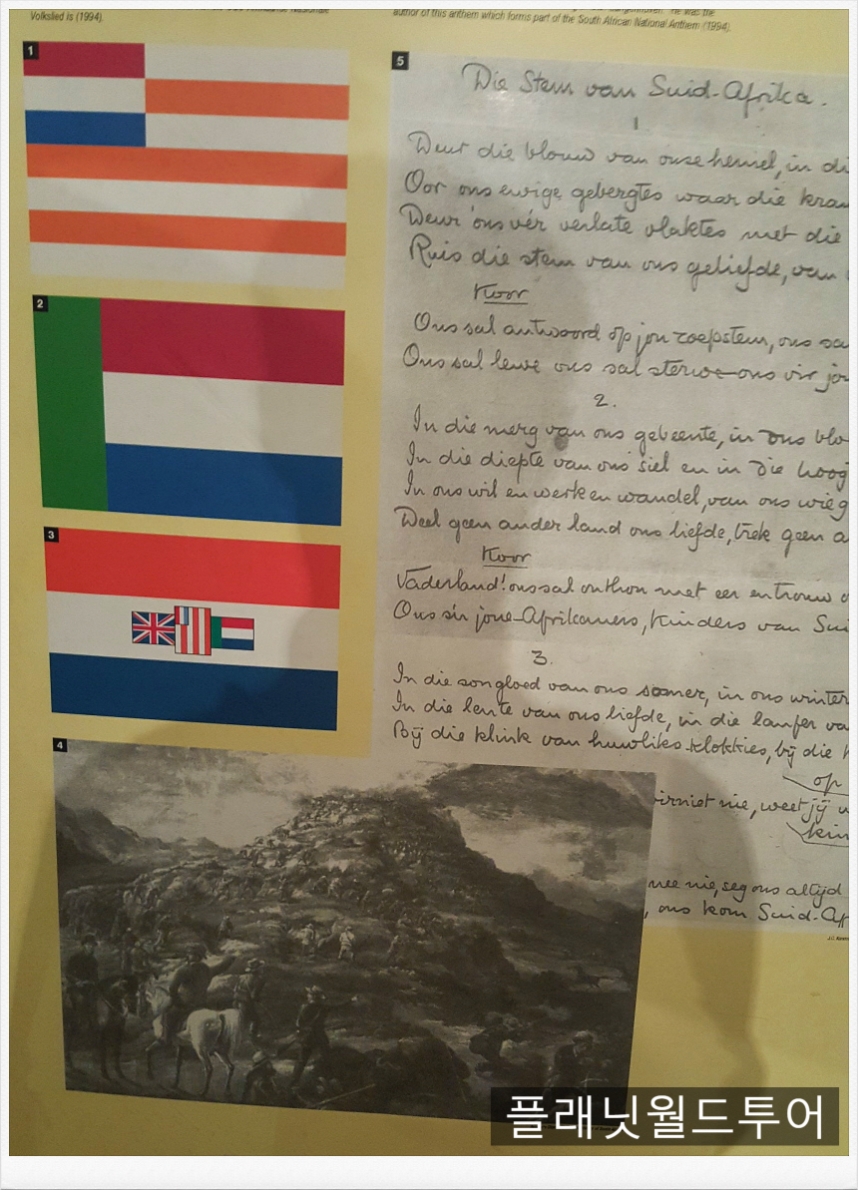 Volkslied is (1994).
author of this anthem which forms part of the South African National Anthem (1994).
1
2
3
4
5
Die Stem van Suid-Afrika.
1
Deur die blouw van onse hemel, in di
Oor ons ewige gebergtes waar die kran
Deur ons vêr verlate vlaktes met die
Ruis die stem van ons geliefde, van
Koor
Ons sal antwoord op jou roepstem, ons sa
Ons sal lewe ons sal sterwe ons vir jou
2.
In die merg van ons gebeente, in ons blo
In die diepte van ons siel en in die hoog
In ons wil en werk en wandel, van ons wieg
Deel geen ander land ons liefde, trek geen a
Koor
Vaderland! ons sal onthou met eer en trouw
Ons s'n jone Afrikaners, kinders van Sui
3.
In die songloed van ons somer, in ons winter
In die lente van ons liefde, in die lanfer va
Bij die klink van huwliks-klokkies, bij die k
op
virniet nie, weet jij
kin
nee nie, seg ons altijd
, ons kom Suid-Af
플래닛월드투어